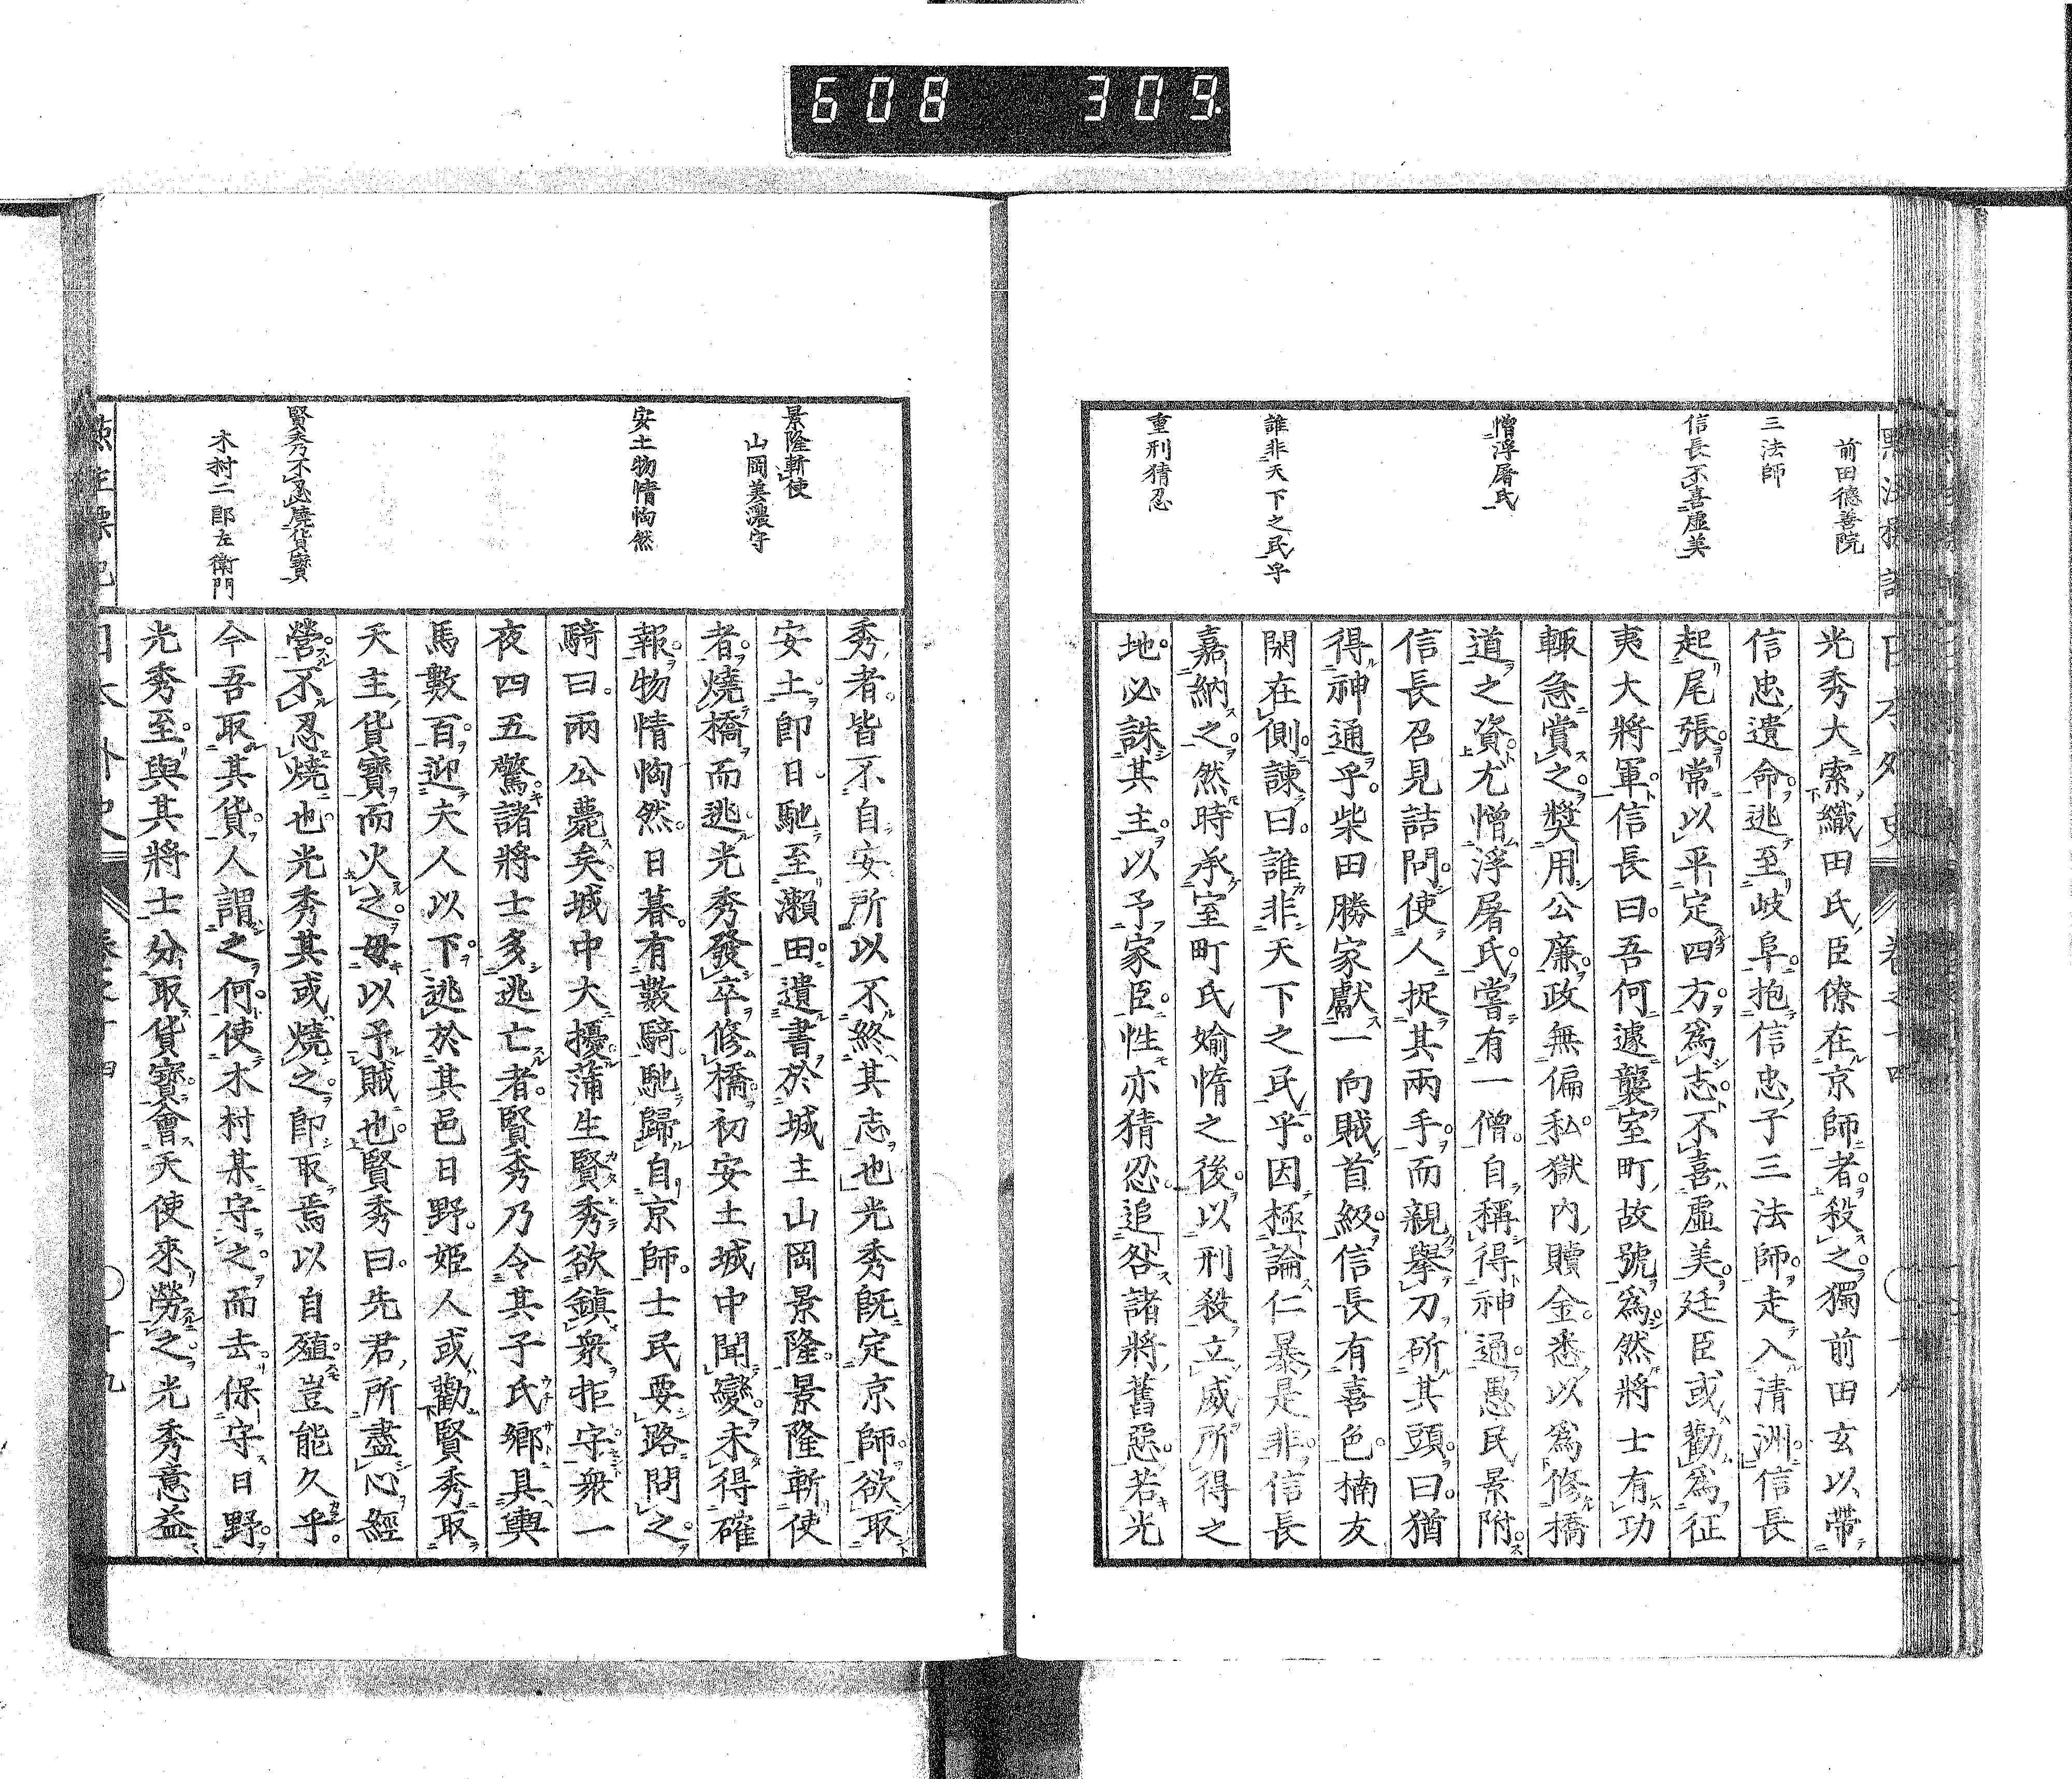 608 309
前田德善院
三法師
信長不喜虛美
憎浮屠氏
誰非天下之民乎
重刑猜忍
光秀大索織田氏臣僚在京師者殺之獨前田玄以帶
信忠遺命逃至岐阜抱信忠子三法師走入清洲信長
起尾張常以平定四方爲志不喜虛美廷臣或勸爲征
夷大將軍信長曰吾何遽襲室町故號爲然將士有功
輒急賞之奬用公廉政無偏私獄内贖金悉以爲修橋
道之資尤憎浮屠氏嘗有一僧自稱得神通愚民景附
信長召見詰問使人捉其兩手而親擧刀斫其頭曰猶
得神通乎柴田勝家獻一向賊首級信長有喜色楠友
閑在側諫曰誰非天下之民乎因極論仁暴是非信長
嘉納之然時承室町氏媮惰之後以刑殺立威所得之
地必誅其主以予家臣性亦猜忍追咎諸將舊惡若光
景隆斬使
山岡美濃守
安土物情恟然
賢秀不忍燒貨寶
木村二郎左衛門
秀者皆不自安所以不終其志也光秀既定京師欲取
安土即日馳至瀨田遺書於城主山岡景隆景隆斬使
者燒橋而逃光秀發卒修橋初安土城中聞變未得確
報物情恟然日暮有數騎馳歸自京師士民要路問之
騎曰兩公薨矣城中大擾蒲生賢秀欲鎭衆拒守衆一
夜四五驚諸將士多逃亡者賢秀乃令其子氏鄉具輿
馬數百迎夫人以下逃於其邑日野姬人或勸賢秀取
天主貨寶而火之毋以予賊也賢秀曰先君所盡心經
營不忍燒也光秀其或燒之即取焉以自殖豈能久乎
今吾取其貨人謂之何使木村某守之而去保守日野
光秀至與其將士分取貨寶會天使來勞之光秀意益
日本外史